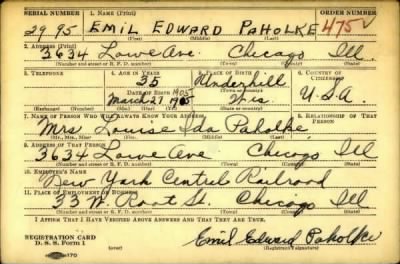 SERIAL NUMBER 1. NAME (Print) ORDER NUMBER
2995 EMIL EDWARD PAHOLKE 475 V
(First) (Middle) (Last)
2. ADDRESS (Print)
3634 Lowe Ave. Chicago Ill.
(Number and street or R. F. D. number) (Town) (County) (State)
3. TELEPHONE 4. AGE IN YEARS 5. PLACE OF BIRTH 6. COUNTRY OF CITIZENSHIP
35 Underhill
DATE OF BIRTH (Town or county)
1905
March 27 1905 Wis. U.S.A.
(Exchange) (Number) (Mo.) (Day) (Yr.) (State or country)
7. NAME OF PERSON WHO WILL ALWAYS KNOW YOUR ADDRESS 8. RELATIONSHIP OF THAT PERSON
Mrs. Louise Ida Paholke
(Mr., Mrs., Miss) (First) (Middle) (Last)
9. ADDRESS OF THAT PERSON
3634 Lowe Ave Chicago Ill
(Number and street or R. F. D. number) (Town) (County) (State)
10. EMPLOYER'S NAME
New York Central Railroad
11. PLACE OF EMPLOYMENT OR BUSINESS
33 W. Root St. Chicago Ill
(Number and street or R. F. D. number) (Town) (County) (State)
I AFFIRM THAT I HAVE VERIFIED ABOVE ANSWERS AND THAT THEY ARE TRUE.
REGISTRATION CARD
D. S. S. Form 1 Emil Edward Paholke
(Registrant's signature)